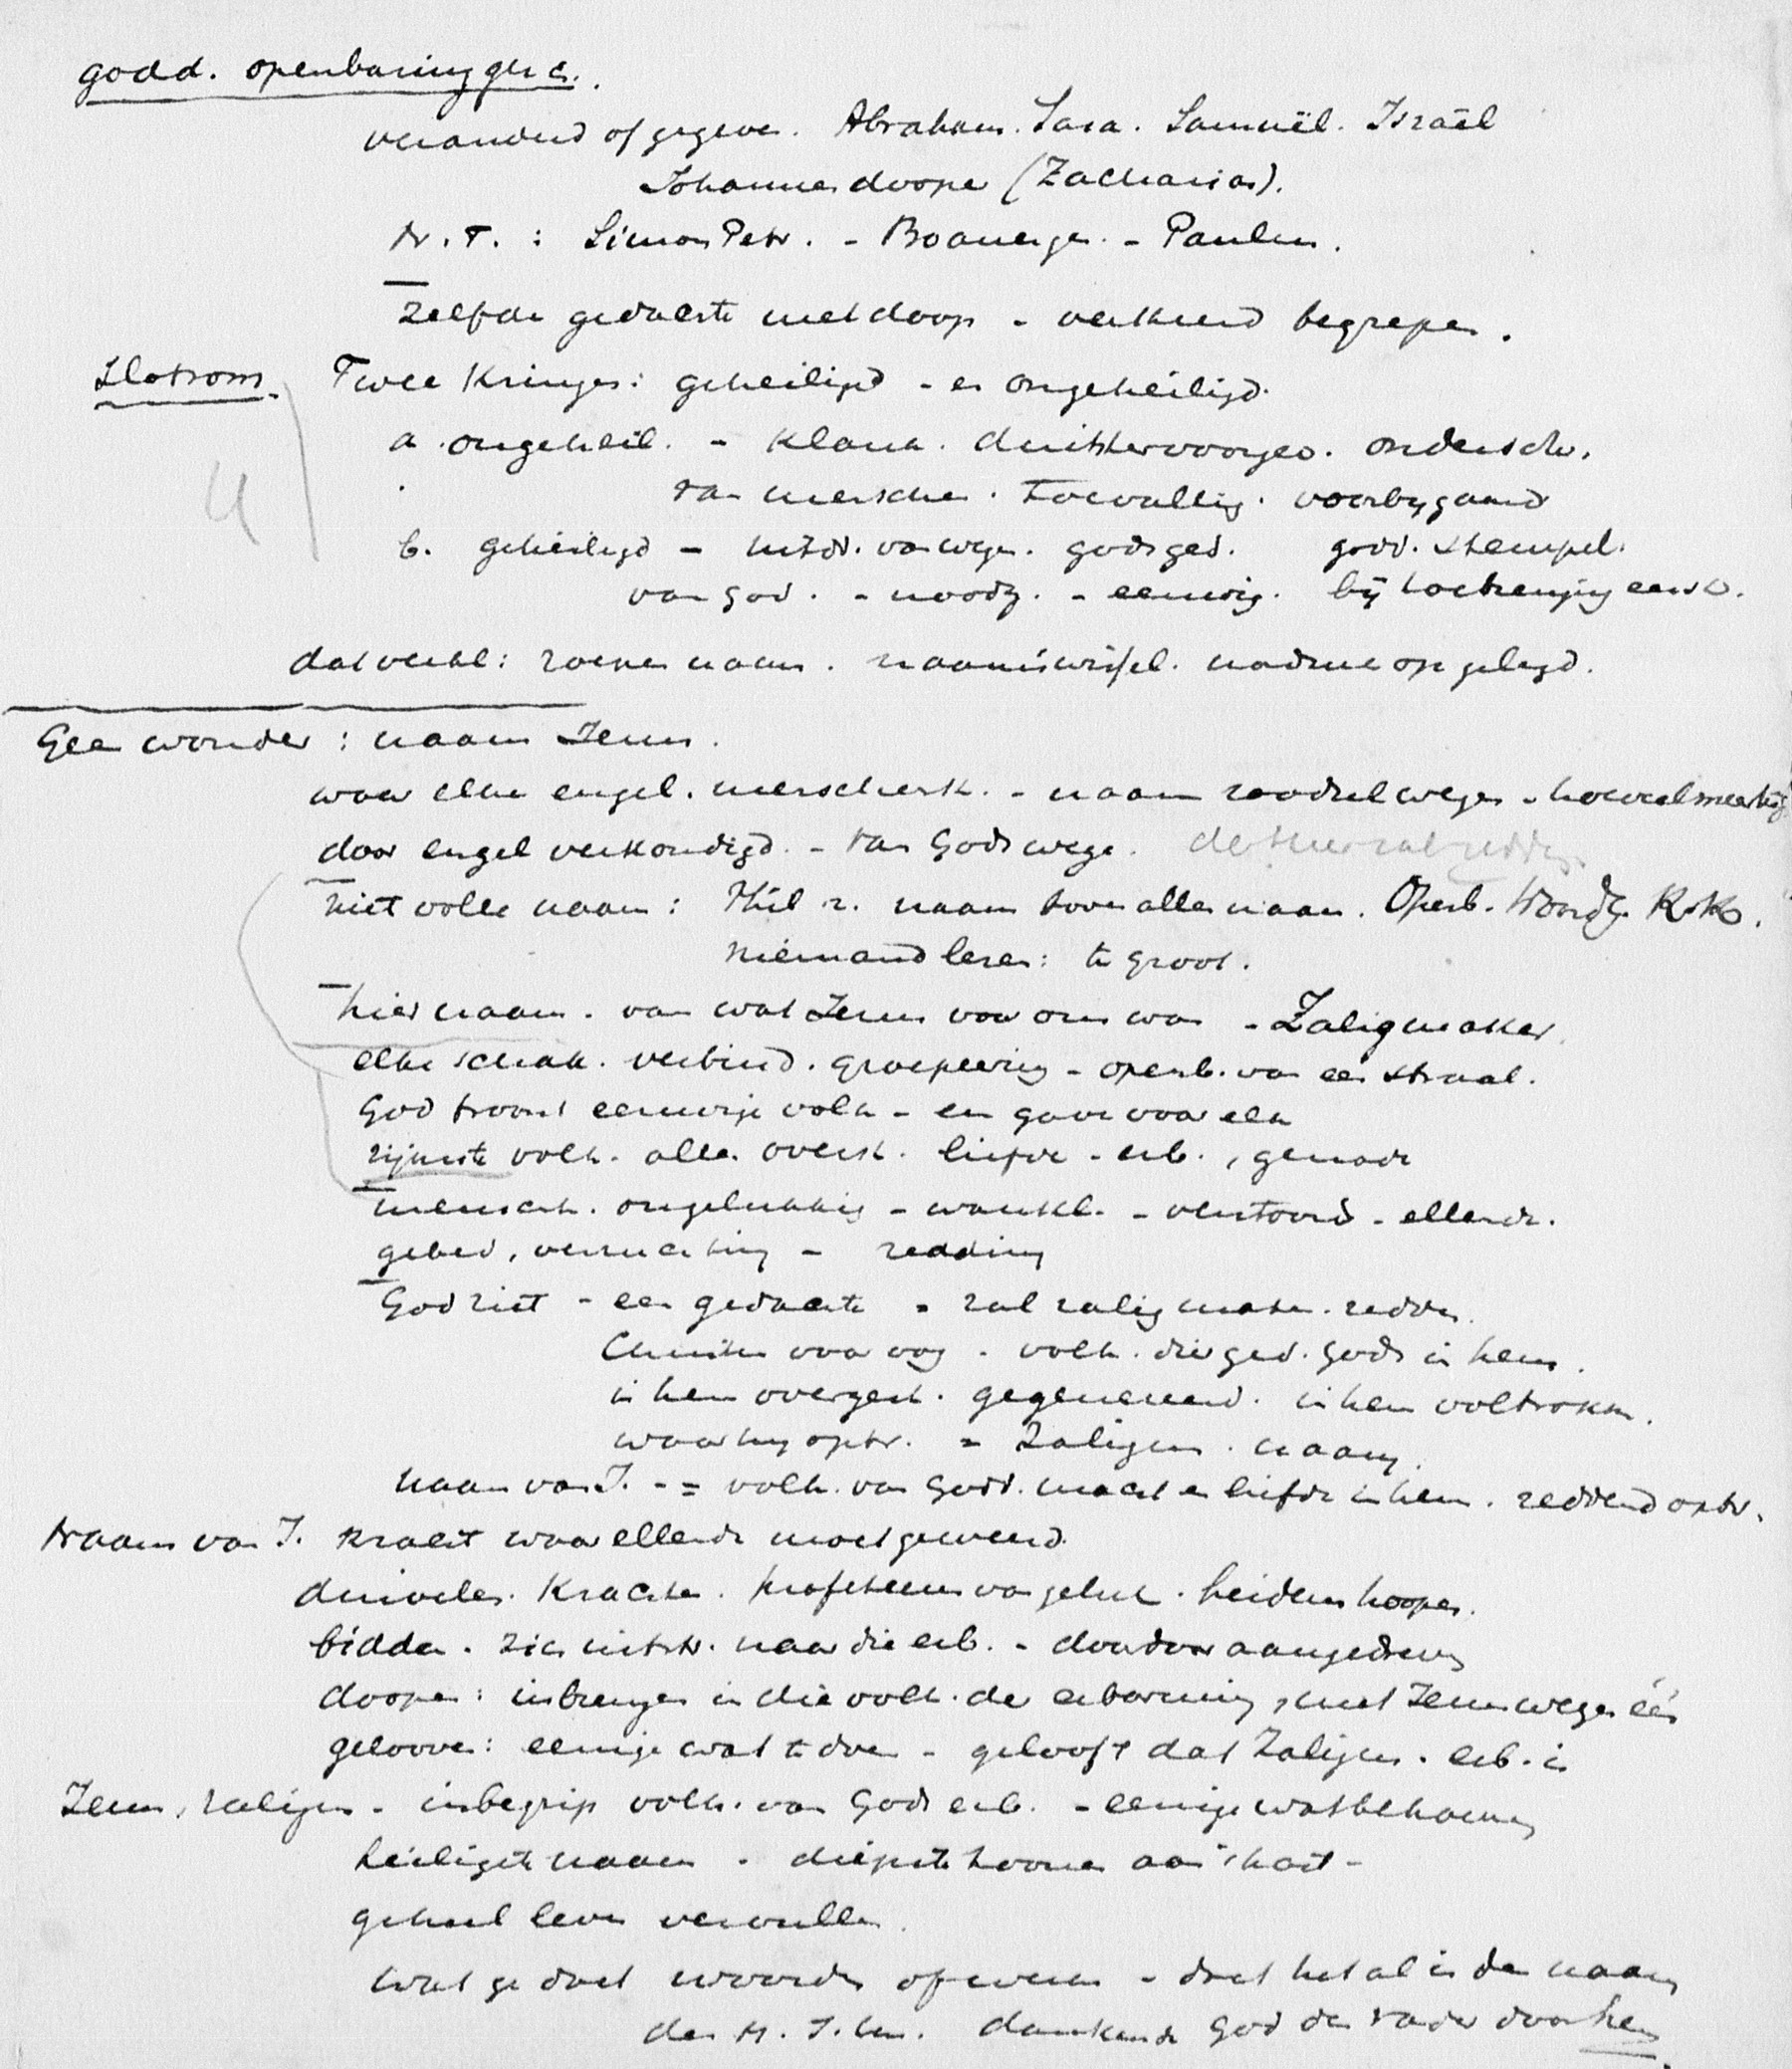 godd. openbaring gesch.
veranderd of gegeven. Abraham. Sara. Samuël. Israël
Johannes doope (Zacharias).
N. T. : Simon Petr. - Boanerges. - Paulus.
zelfde gedachte met doop - verkeerd begrepen.
Slotsom. Twee Kringen: geheiligd - en ongeheiligd.
a. ongeheil. - klank. ondersch.
van menschen. toevallig. voorbygaand
b. geheiligd - uitdr. van wezen. godsged. godd. stempel.
van God. - noodz. - eeuwig. bij
dat verkl: roepen naam. naamswissel. nadruk op gelegd.
Geen wonder: naam Jezus.
waar elke engel. menschenk. - naam
door engel verkondigd. - van Godswege.
niet volle naam: Phil 2. naam boven alle naam. Openb. Woord G.
niemand lezen: te groot.
hier naam. van wat Jezus voor ons was - Zaligmaker.
elke schak. verbind. groepeering - openb. van een straal.
God troont eeuwige volh - en gave voor elk
rijkste volh. alle. overst. liefde - erb., genade
mensch. ongelukkig - wankel. - verstoord - ellende.
gebed, verzuchting - redding
God ziet - een gedachte = zal zalig maken. redden.
Christus voor oog. volh. dier ged. Gods in hem.
in hem overgest. in hem voltrokken.
waar hij optr. = Zaligm. naam.
Naam van J. - = volh. van Godd. macht en liefde in hem. reddend optr.
Naam van J. kracht waar ellende moet geweerd.
duivelen. krachten. profeteeren van geluk. heidenen hoopen.
bidden. zich uitstr. naar die erb. - daardoor aangedreven
doopen: inbrengen in die volh. der erbarming, met Jezus wezen één
gelooven: eenige wat te doen - gelooft dat Zaligm. erb. is
Jezus, zaligm - inbegrip volh. van Gods erb. - eenige wat behoeven
heiligste naam. diepste toonen aan 't hart -
geheel leven vervullen.
Wat ge doet woorden of werken - doet het al in den naam
des H. J. Chr. dankende God den Vader door hem